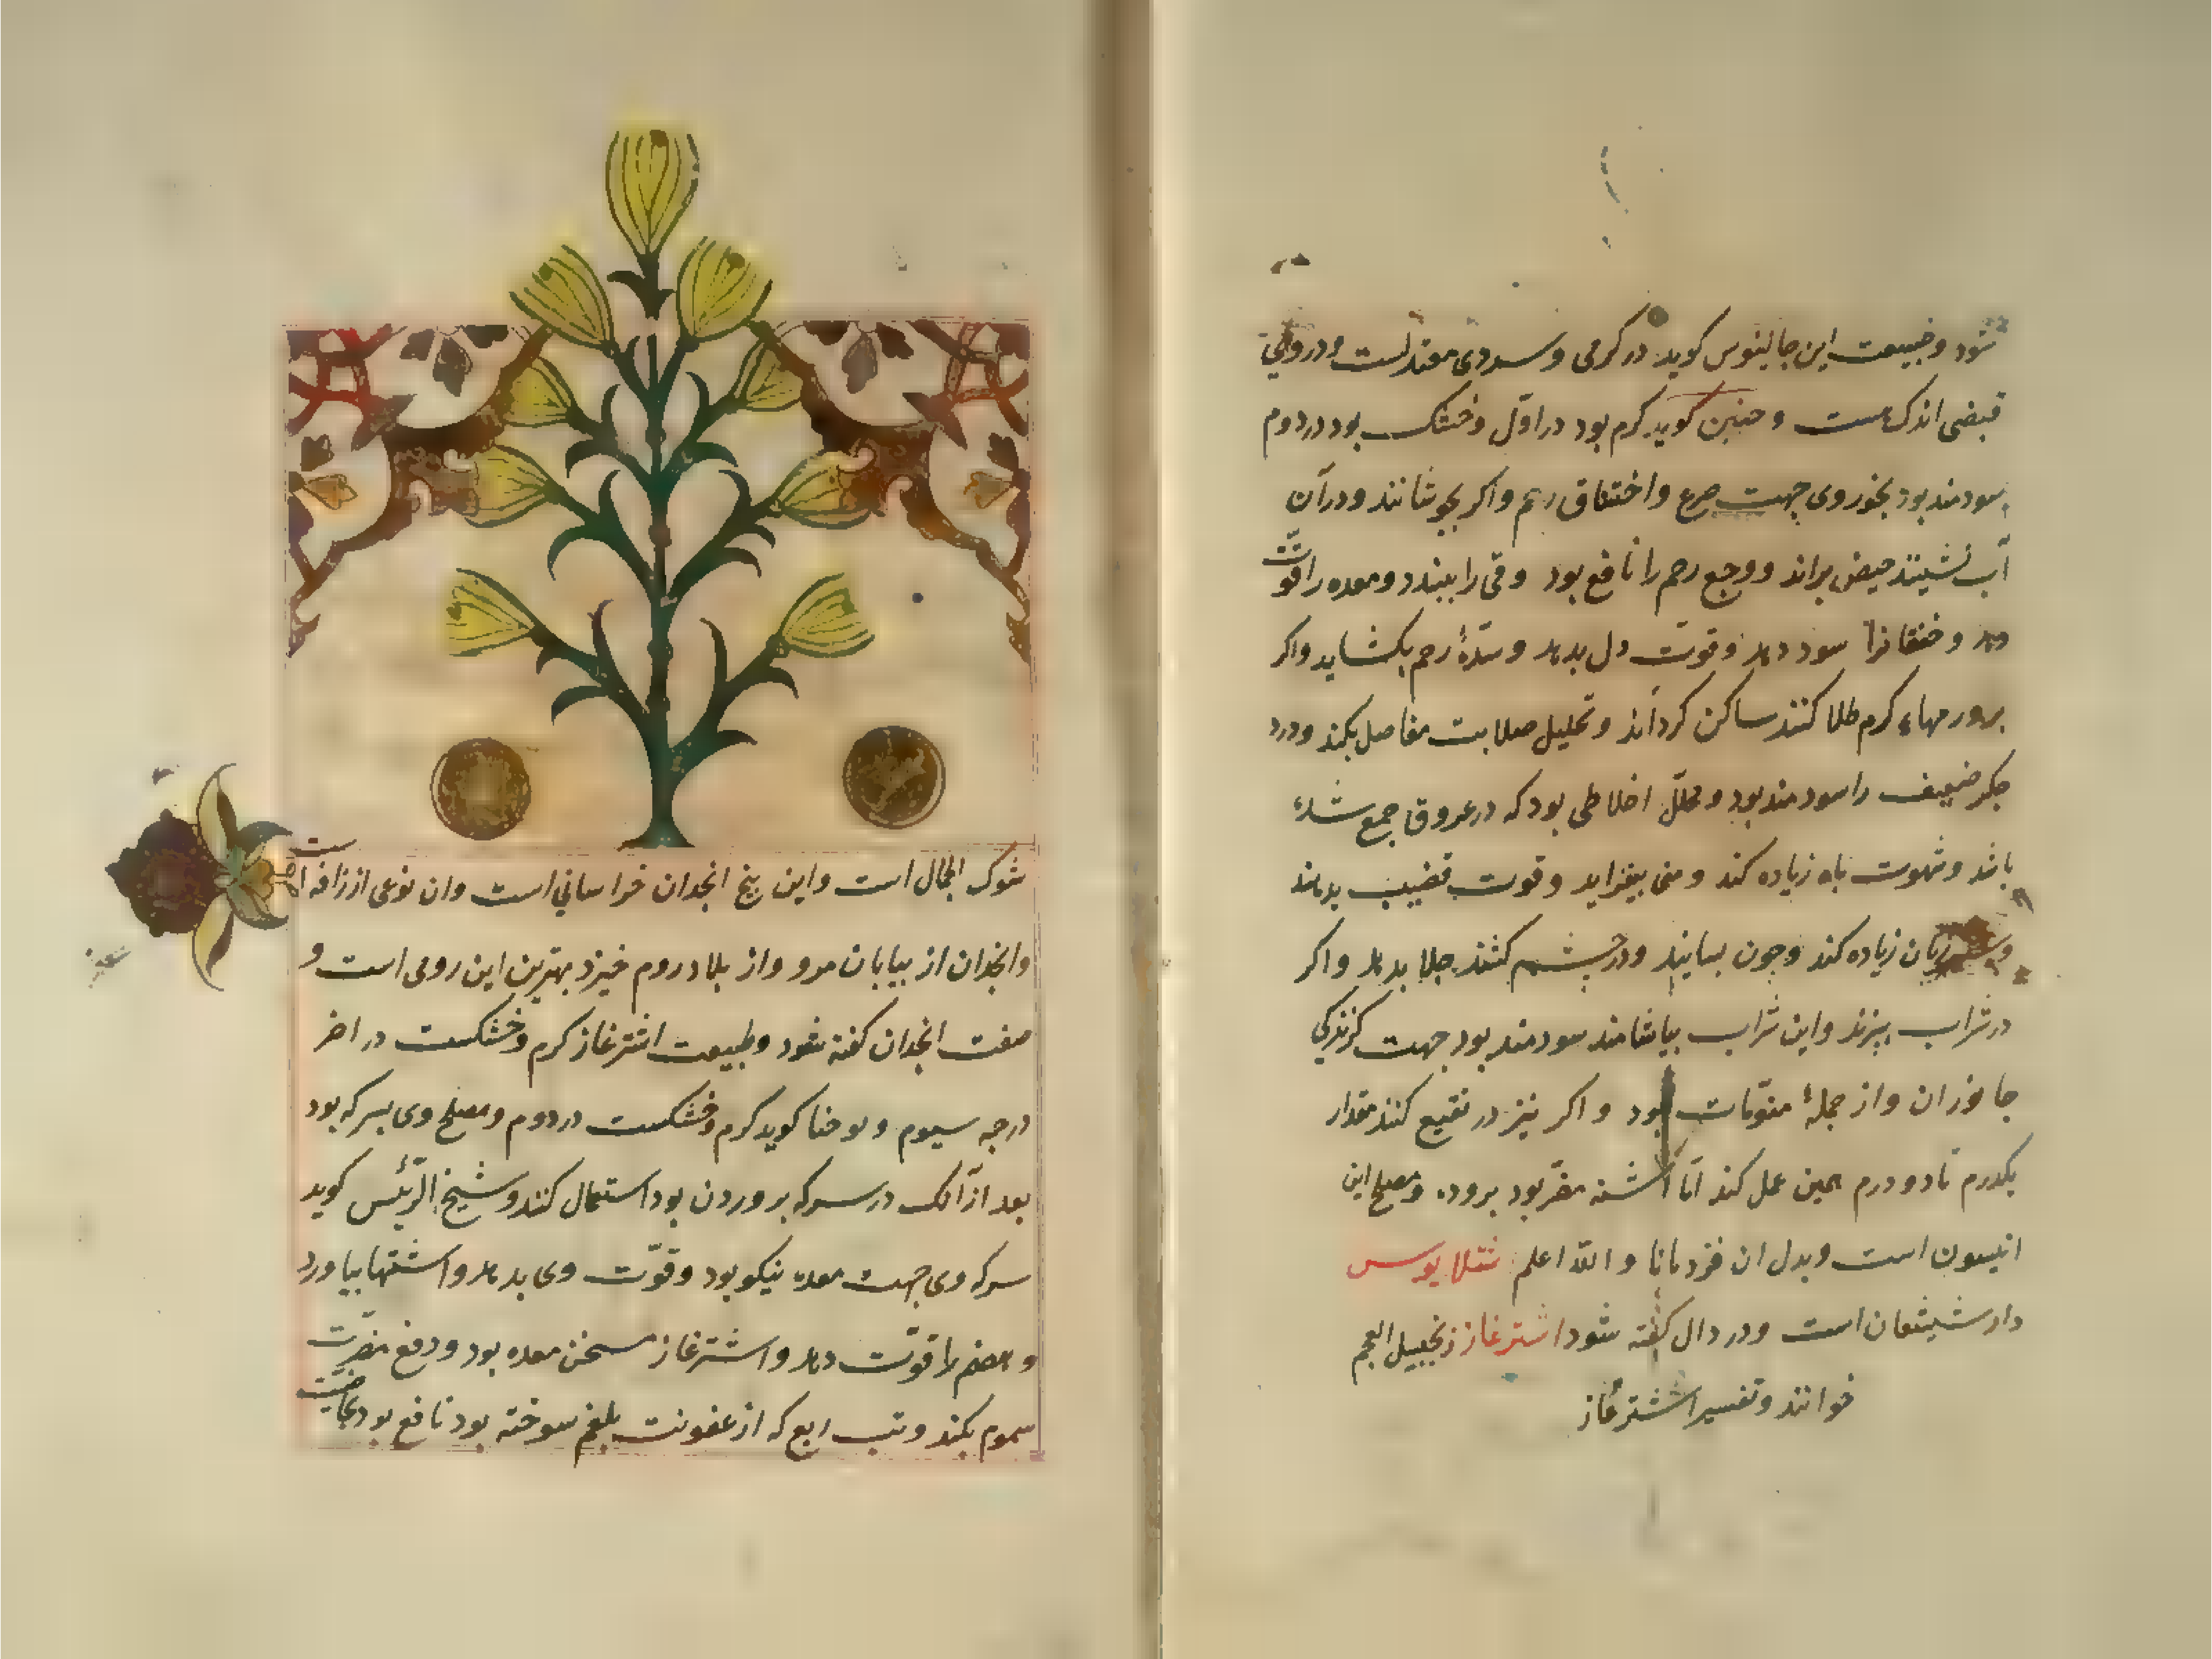 شود و طبیعت این جالینوس کوید در کرمی و سردی معتدلست و در وی
قبضی اندک هست و حنین کوید کرم بود در اوّل و خشک بود در دوم
سودمند بود بخور وی جهت صرع و اختناق رحم و اکر بجوشانند و در آن
آب نشینند حیض براند و وجع رحم را نافع بود و قی را ببندد و معده را قوّت
دهد و خفقانرا سود دهد و قوّت دل بدهد و سدّهٔ رحم بکشاید و اکر
برورمهاء کرم طلا کنند ساکن کرداند و تحلیل صلابت مفاصل بکند و درد
جکر ضعیف را سودمند بود و محلّل اخلاطی بود که در عروق جمع شدهٔ
باشد و شهوت باه زیاده کند و منی بیفزاید و قوت قضیب بدهد
زیاده کند و جون بسایند و در جشم کشند جلا بدهد و اکر
در شراب بپزند و این شراب بیاشامند سودمند بود جهت کزندکی
جانوران و از جملهٔ مقوّیات بود و اکر نیز در نقیع کنند مقدار
یکدرم تا دو درم همین عمل کند امّا مضرّ بود برودہ و مصلح این
انیسون است و بدل ان قردمانا و اللّه اعلم
دارشیشعان است و در دال کفته شود اشترغاز زنجبیل العجم
خوانند و تفسیر اشترغاز
شوک الجمال است و این بیخ انجدان خراسانی است و ان نوعی از زافه است
و انجدان از بیابان مرو و از بلاد روم خیزد بهترین این رومی است و
صفت انجدان کفته شود و طبیعت اشترغاز کرم و خشکست در اخر
درجه سیوم و یوحنا کوید کرم و خشکست در دوم و مصلح وی بسرکه بود
بعد از آنک در سرکه بروردن بود استعمال کنند و شیخ الرّئیس کوید
سرکه وی جهت معده نیکو بود و قوّت وی بدهد و اشتها بیاورد
و هضم را قوّت دهد و اشترغاز مسخن معده بود و دفع مضرّت
سموم بکند و تب ربع که از عفونت بلغم سوخته بود نافع بود